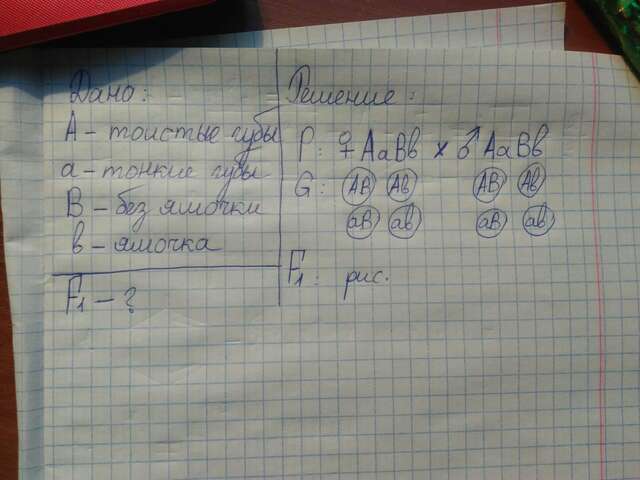 Дано:
А - толстые губы
а - тонкие губы
В - без ямочки
в - ямочка
F₁ - ?
Решение:
P: ♀ АаВв × ♂ АаВв
G: АВ Ав АВ Ав
аВ ав аВ ав
F₁: рис.